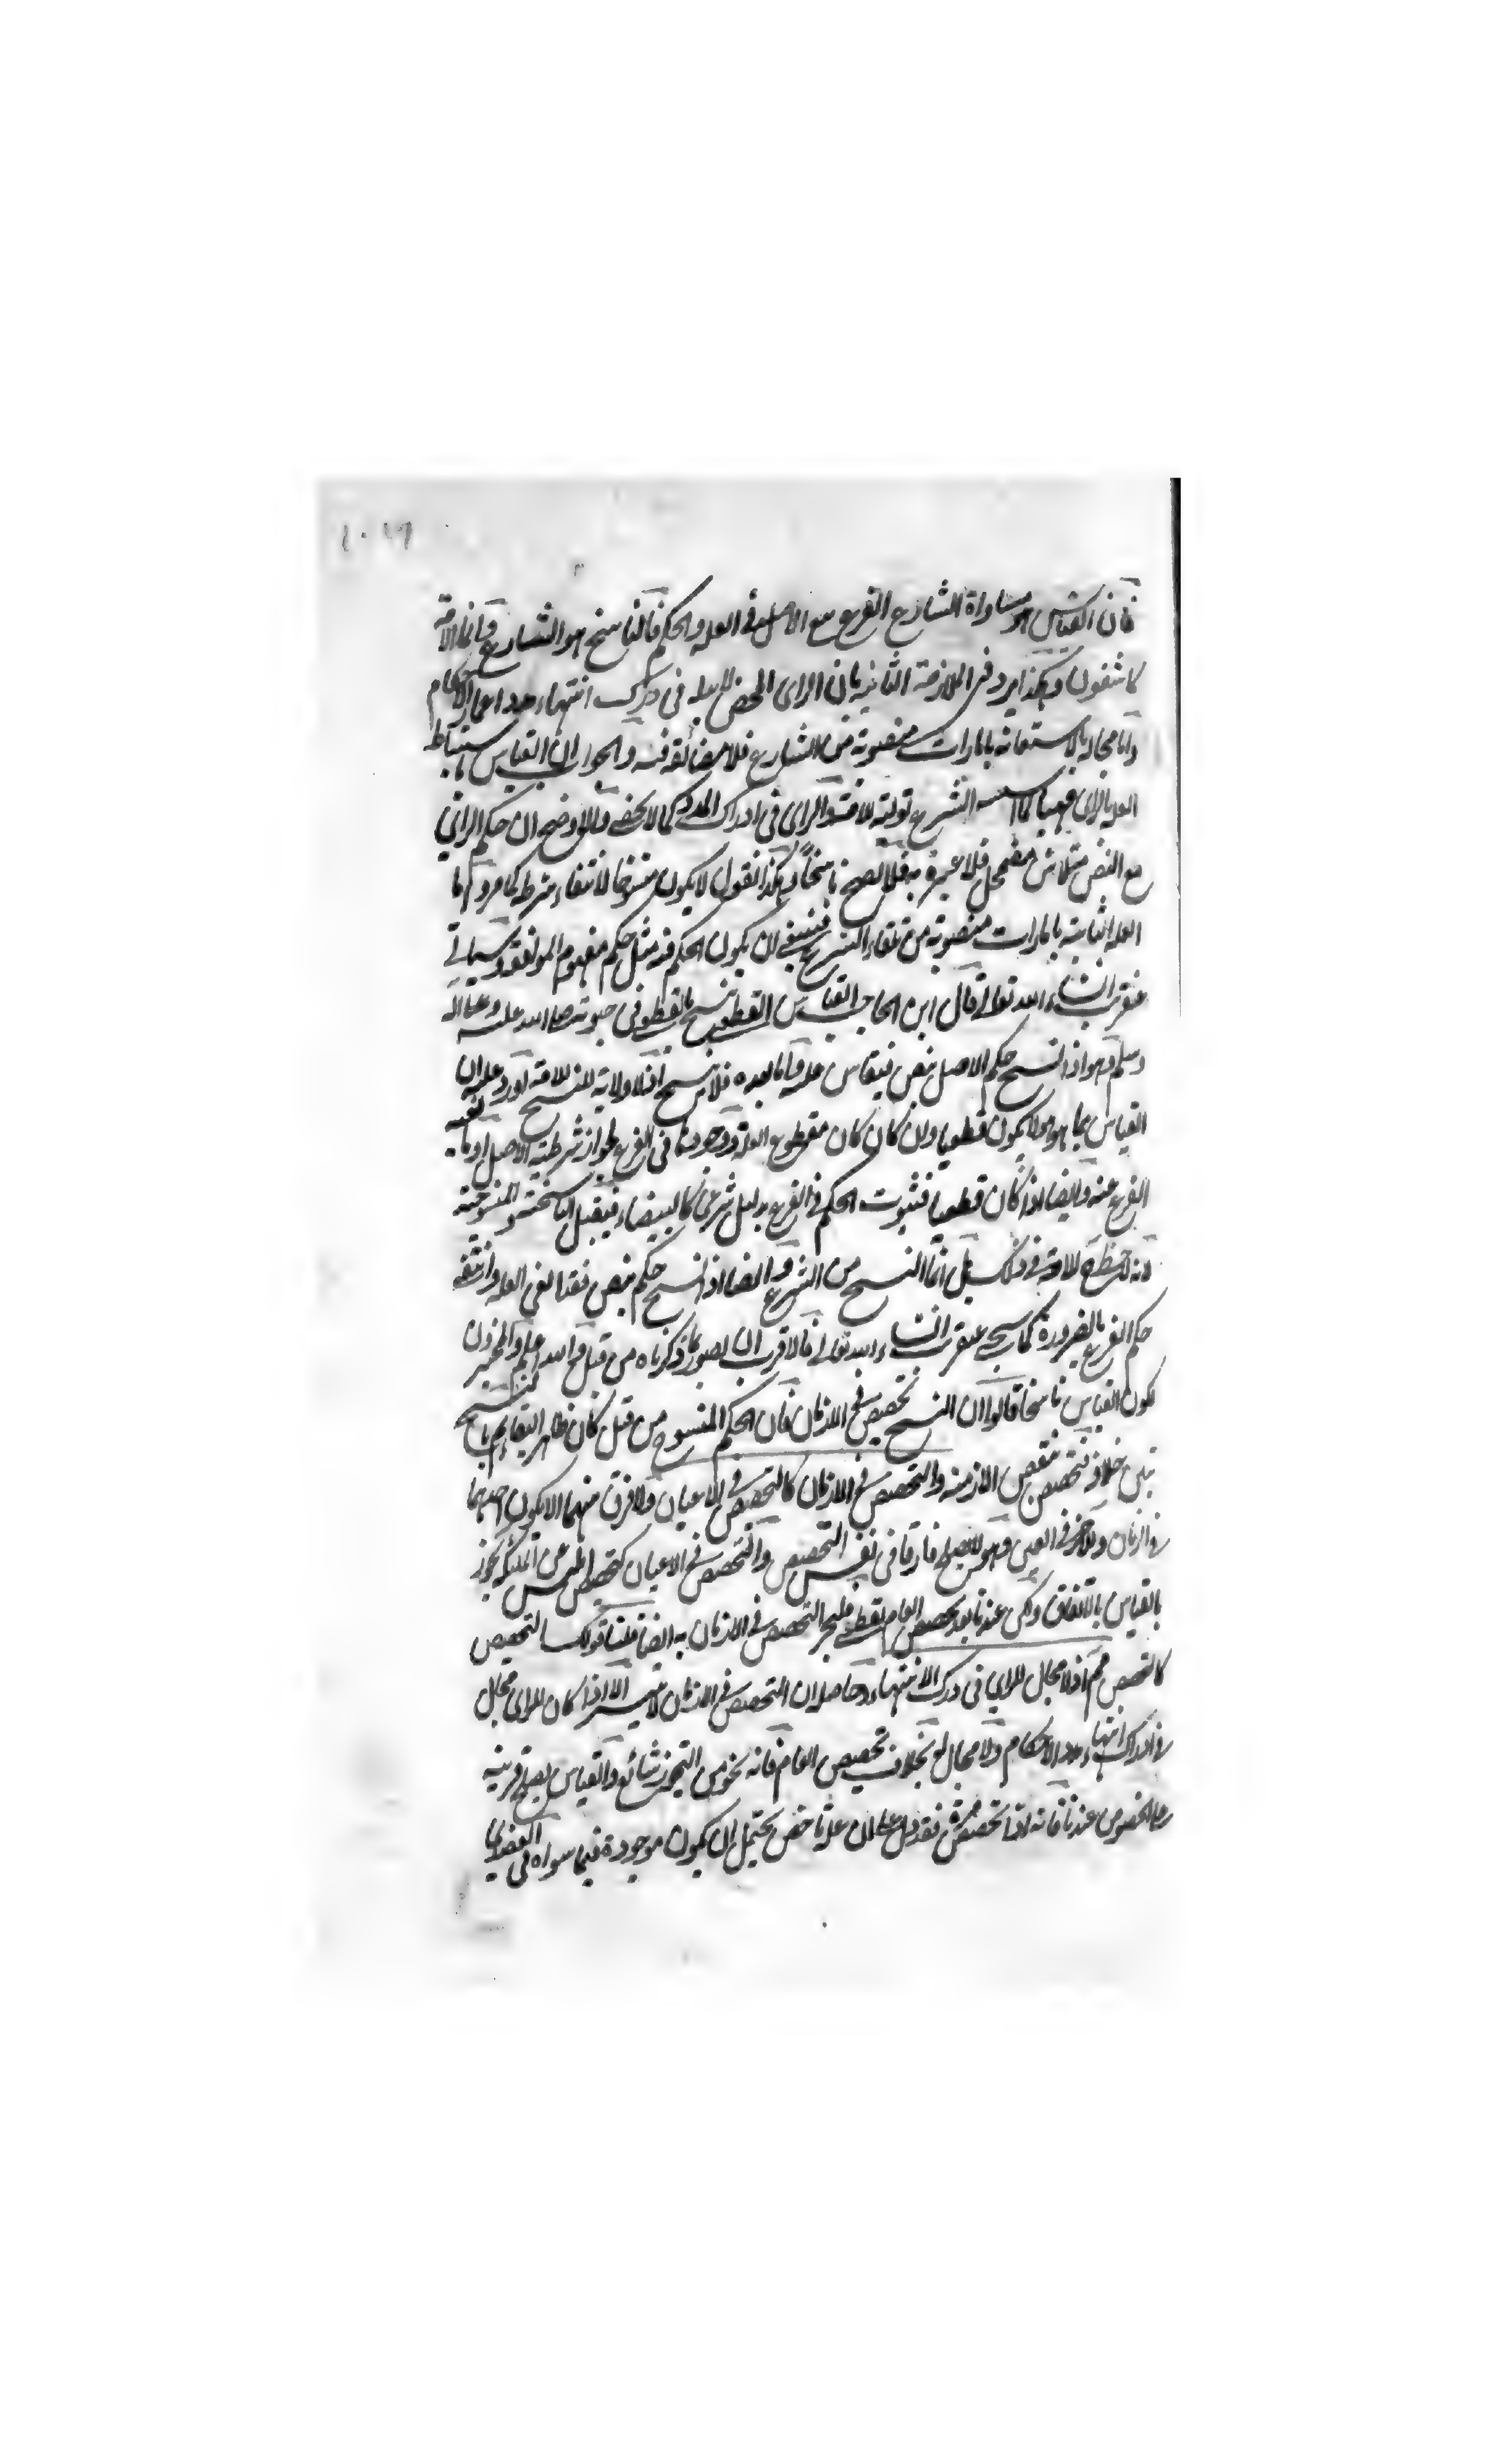 ١٠٢٦
فان القياس هو مساواة الشارع الفرع مع الاصل في العلة والحكم فالناسخ هو الشارع وانما الامة
كاشفون وهكذا يرد في الملازمة الثانية بان الراى المحض لا بد له في درك انتهاء مدد اعمار الاحكام
واما مجاله بالاستعانة بامارات منصوبة من الشارع فلا مضائقة فيه والجواب ان القياس باستنباط
العلة بالراى فهنا كما الشرع تولية للامة والراى فى ادراك المدد كما لا يخفى والاوضح ان حكم الراى
مع النص متلاش مضمحل فلا عبرة به فلا يصح ناسخا وهكذا نقول لا يكون منسوخا لانتفاء شرطه كما مر واما
العلة الثابتة بامارات منصوبة من تلقاء الشرع فينبغى ان يكون الحكم فيه مثل حكم مفهوم الموافقة وسياتى
عنقريب ان شاء الله تعالى قال ابن الحاجب القياس القطعى ينسخ بالقطعى فى حيوته صلى الله عليه وعلى اله
وسلم وهو اذا نسخ حكم الاصل بنص فيقاس عليه واما بعده فلا نسخ اذ لا ولاية للنسخ للامة اورد عليه ان
القياس بما هو هو لا يكون قطعيا وان كان كان مقطوع العلة ووجودها فى الفرع لجواز شرطية الاصل او مانعية
الفرع عنه وايضا اذا كان قطعيا فثبوت الحكم فى الفرع بدليل شرعى كالبيضاء فيقبل الناسخية والمنسوخية
لانه لا للامة فى ذلك بل انما النسخ من الشرع وايضا اذا نسخ حكم بنص فقد الغى العلة وانتفى
حكم الفرع بالضرورة كما سيجئ عنقريب ان شاء الله تعالى فالاقرب ان ما ذكرناه من قبل والله اعلم والمجيزون
لكون القياس ناسخا قالوا ان النسخ تخصيص فى الازمان فان الحكم المنسوخ من قبل كان ظاهر البقاء ثم بالنسخ
تبين خلافه فتخصص بعض الازمنة والتخصيص فى الازمان كالتخصيص فى الاعيان ولا فرق بينهما الا بكون احدهما
فى الزمان والاخر فى العين وهو لا يصلح فارقا فى نفس التخصيص والتخصيص فى الاعيان كتخصيص ابليس عن الملئكة يجوز
بالقياس بالاتفاق ولكن عندنا بعد تخصيص العام بقطعى فليجز التخصيص فى الازمان به ايضا قلنا قولك التخصيص
كالتخصيص مم اذ لا مجال للراى فى درك الانتهاء وحاصله ان التخصيص فى الازمان لا يتيسر الا اذا كان للراى مجال
فى ادراك انتهاء مدد الاحكام ولا مجال له بخلاف تخصيص العام فانه نحو من التجوز شائع والقياس يصلح قرينة
على الخصوص عندنا فانه اذا تخصص مرة فقد دل على ان علة ما خص يحتمل ان يكون موجودة فيما سواه فى